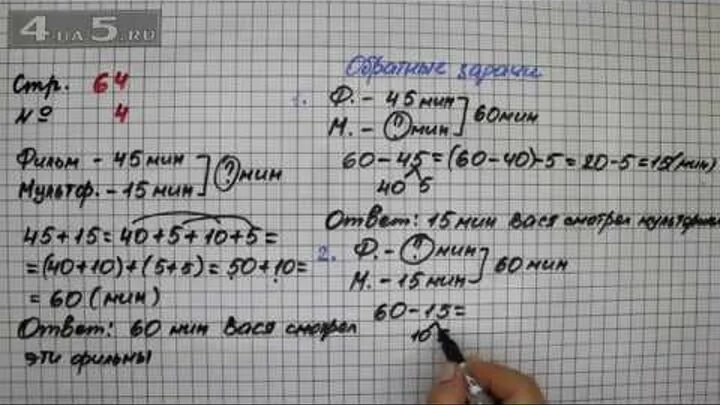 4ua5.ru
Стр. 64
№ 4
Фильм - 45 мин
Мультф. - 15 мин
? мин
45+15=40+5+10+5=
=(40+10)+(5+5)=50+10=
=60(мин)
Ответ: 60 мин Вася смотрел
эти фильмы
Обратные задачи
1.
Ф. - 45 мин
М. - ? мин
60мин
60-45=(60-40)-5=20-5=15(мин)
40 5
Ответ: 15 мин Вася смотрел
2.
Ф. - ? мин
М. - 15 мин
60 мин
60-15=
10